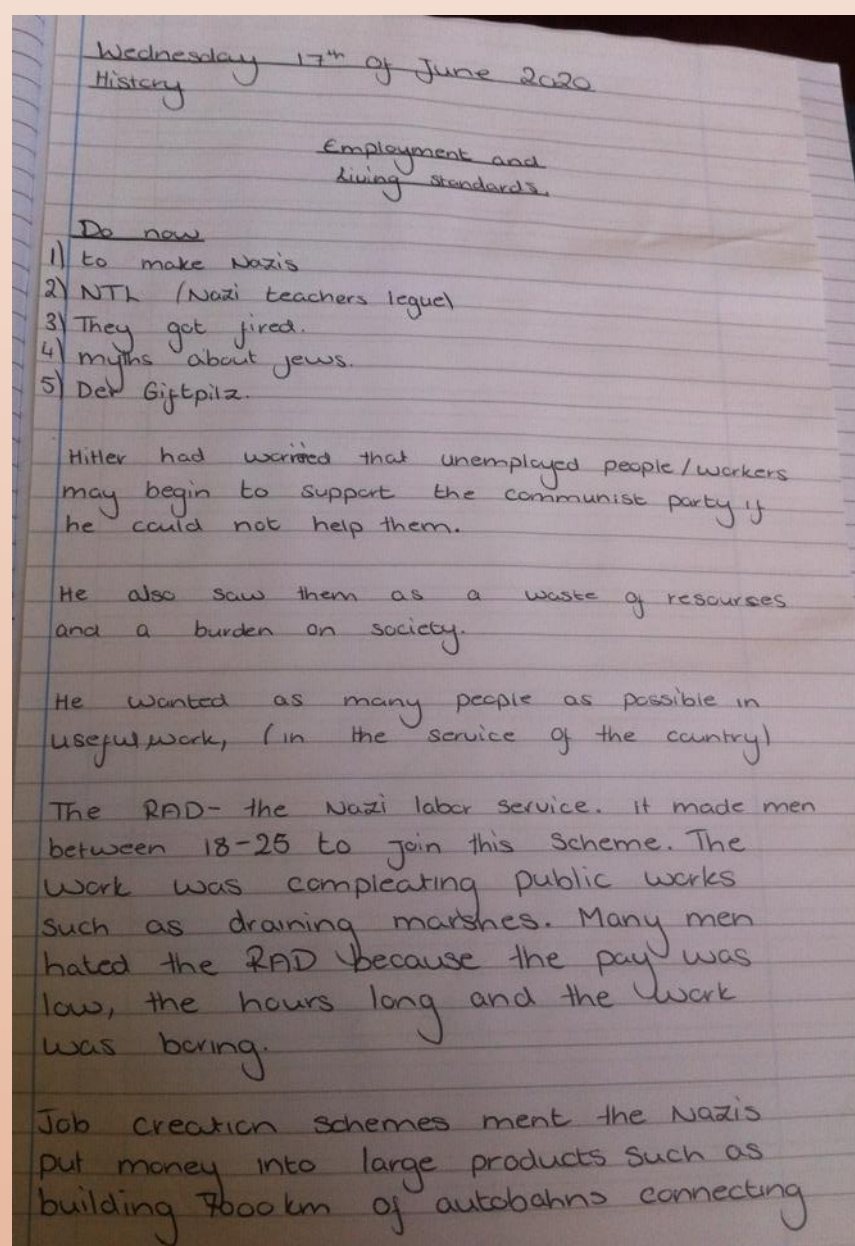 Wednesday 17th of June 2020
History
Employment and
Living standards.
Do now
1) to make Nazis
2) NTL (Nazi teachers legue)
3) They got fired.
4) myths about jews.
5) Der Giftpilz.
Hitler had warried that unemployed people/workers
may begin to support the communist party if
he could not help them.
He also saw them as a waste of resourses
and a burden on society.
He wanted as many people as possible in
useful work, (in the service of the country)
The RAD- the Nazi labor service. it made men
between 18-25 to join this scheme. The
work was compleating public works
such as draining marshes. Many men
hated the RAD because the pay was
low, the hours long and the work
was boring.
Job creation schemes ment the Nazis
put money into large products such as
building 7600 km of autobahns connecting